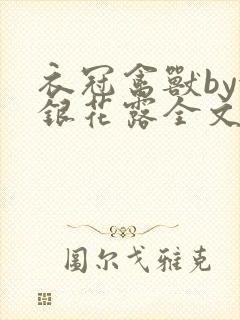 衣冠禽獸by
銀花露全文
圖尔戈雅克